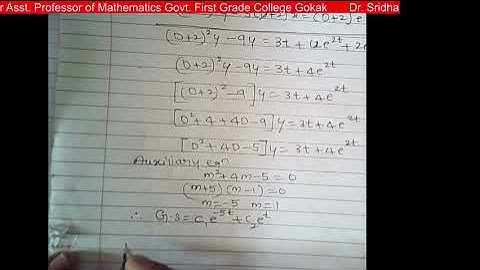 r Asst. Professor of Mathematics Govt. First Grade College Gokak Dr. Sridha
(D+2)²y-9y=3t+2e^2t+2e
(D+2)²y-9y=3t+4e^2t
[(D+2)²-9]y=3t+4e^2t
[D²+4+4D-9]y=3t+4e^2t
[D²+4D-5]y=3t+4e^2t
Auxiliary eqn
m²+4m-5=0
(m+5)(m-1)=0
m=-5 m=1
∴ G.S=c₁e^-5t+c₂e^t